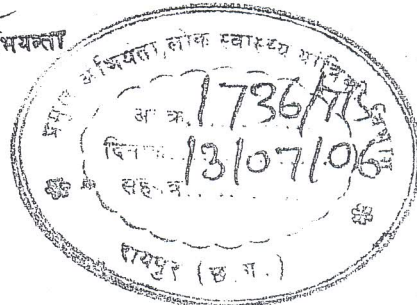 भियन्ता
प्रमुख अभियंता, लोक स्वास्थ्य यांत्रिकी विभाग
आ. क्र. 1736/
दिनांक 13/07/06
सह पत्र
रायपुर (छ. ग.)